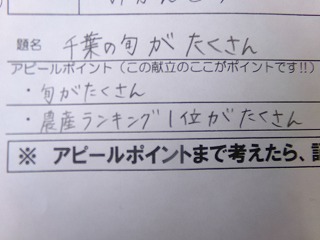 題名 千葉の旬がたくさん
アピールポイント(この献立のここがポイントです!!)
・旬がたくさん
・農産ランキング1位がたくさん
※ アピールポイントまで考えたら、